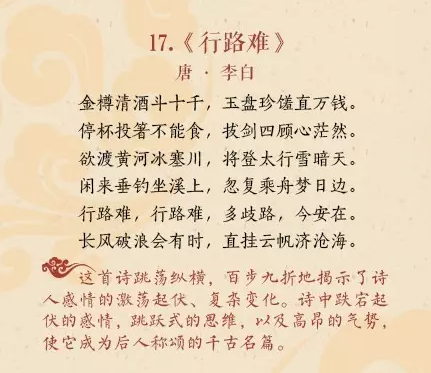 17.《行路难》
唐 · 李白
金樽清酒斗十千，玉盘珍馐直万钱。
停杯投箸不能食，拔剑四顾心茫然。
欲渡黄河冰塞川，将登太行雪暗天。
闲来垂钓坐溪上，忽复乘舟梦日边。
行路难，行路难，多歧路，今安在。
长风破浪会有时，直挂云帆济沧海。
这首诗跳荡纵横，百步九折地揭示了诗
人感情的激荡起伏、复杂变化。诗中跌宕起
伏的感情，跳跃式的思维，以及高昂的气势，
使它成为后人称颂的千古名篇。